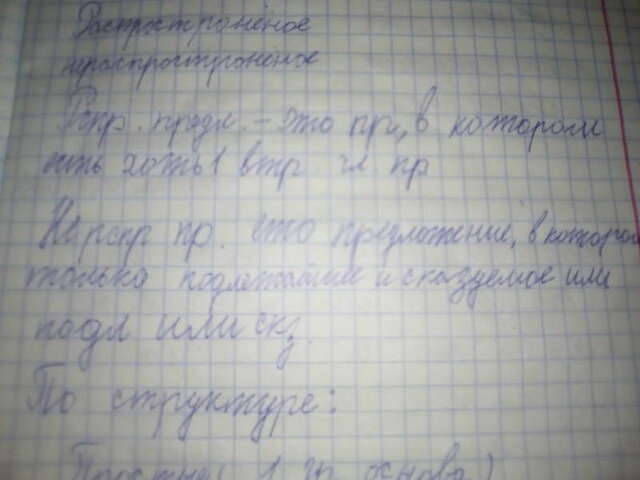 Распространёное
нераспространёное
Рспр. предл. – это пр., в котором
есть хоть 1 втр. чл. пр
Нерспр пр. это предложение, в котором
только подлежащие и сказуемое или
подл или скз.
По структуре:
Простые ( 1 гр. основа)